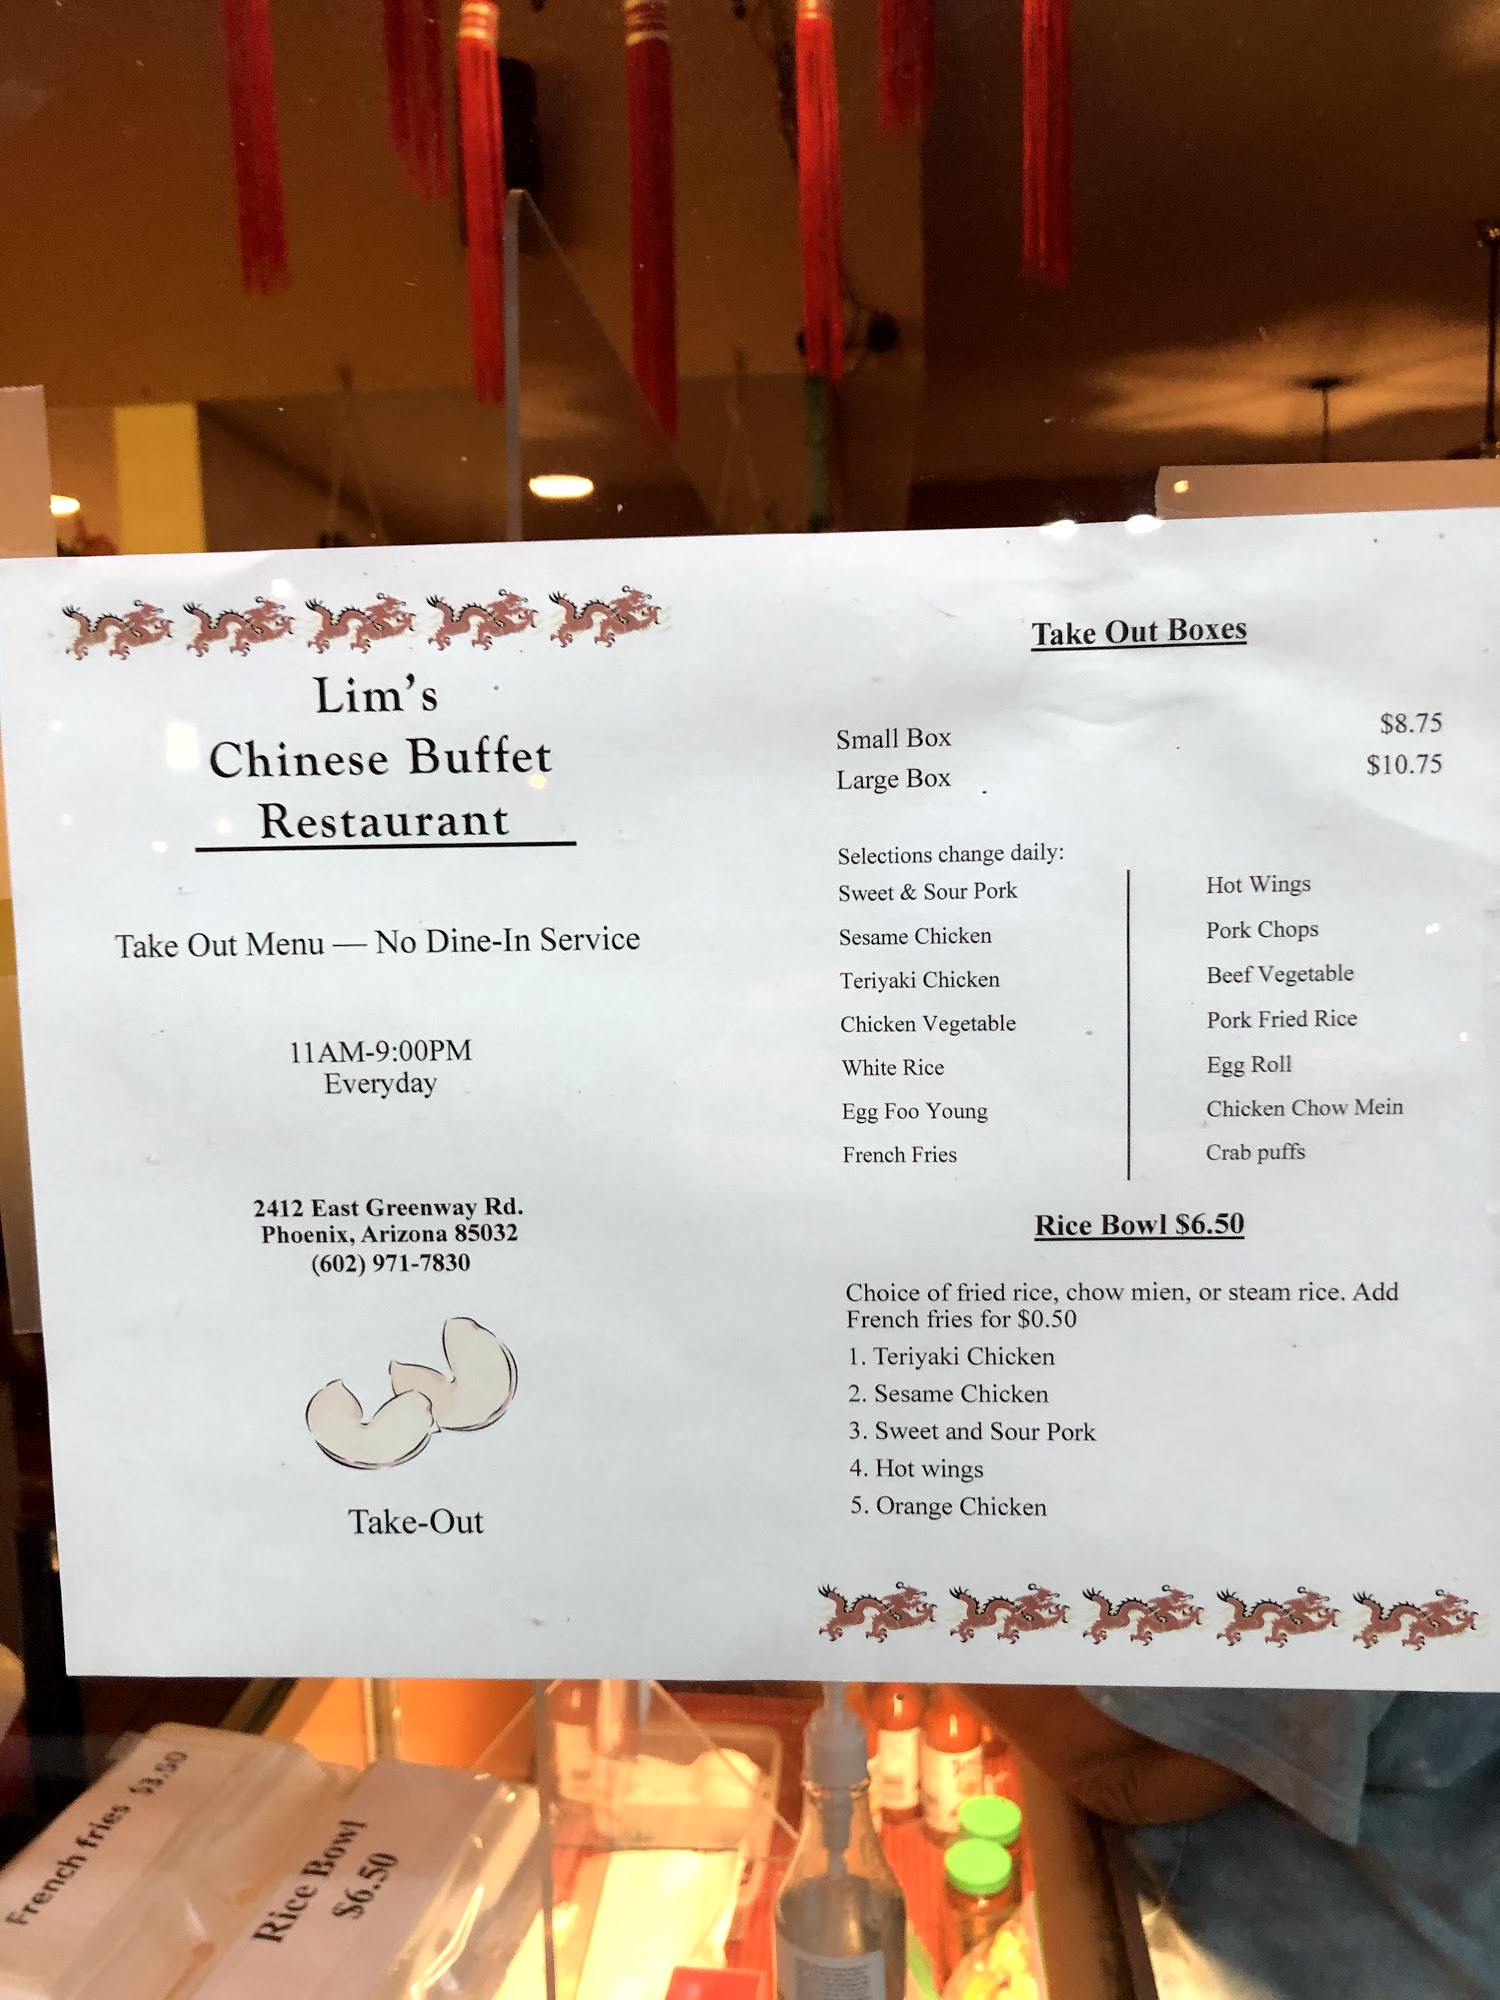 Lim's
Chinese Buffet
Restaurant
Take Out Menu — No Dine-In Service
11AM-9:00PM
Everyday
2412 East Greenway Rd.
Phoenix, Arizona 85032
(602) 971-7830
Take-Out
Take Out Boxes
Small Box $8.75
Large Box $10.75
Selections change daily:
Sweet & Sour Pork
Sesame Chicken
Teriyaki Chicken
Chicken Vegetable
White Rice
Egg Foo Young
French Fries
Hot Wings
Pork Chops
Beef Vegetable
Pork Fried Rice
Egg Roll
Chicken Chow Mein
Crab puffs
Rice Bowl $6.50
Choice of fried rice, chow mien, or steam rice. Add
French fries for $0.50
1. Teriyaki Chicken
2. Sesame Chicken
3. Sweet and Sour Pork
4. Hot wings
5. Orange Chicken
French fries $3.50
Rice Bowl
$6.50